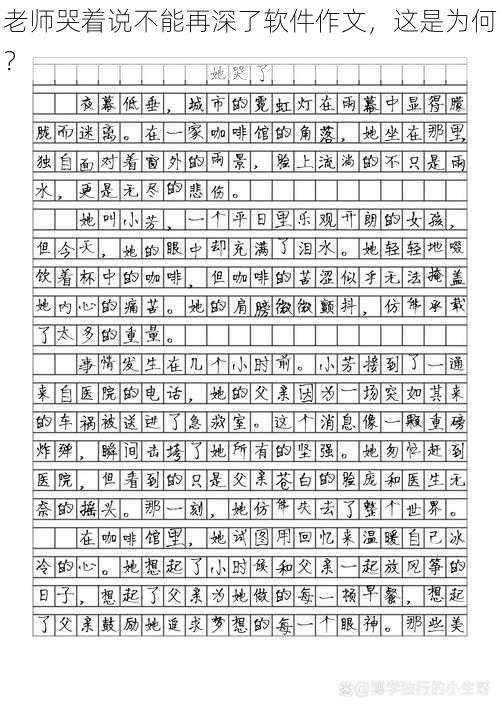 老师哭着说不能再深了软件作文，这是为何
？
她哭了
夜幕低垂，城市的霓虹灯在雨幕中显得朦
胧而迷离。在一家咖啡馆的角落，她坐在那里，
独自面对着窗外的雨景，脸上流淌的不只是雨
水，更是无尽的悲伤。
她叫小芳，一个平日里乐观开朗的女孩，
但今天，她的眼中却充满了泪水。她轻轻地啜
饮着杯中的咖啡，但咖啡的苦涩似乎无法掩盖
她内心的痛苦。她的肩膀微微颤抖，仿佛承载
了太多的重量。
事情发生在几个小时前。小芳接到了一通
来自医院的电话，她的父亲因为一场突如其来
的车祸被送进了急救室。这个消息像一颗重磅
炸弹，瞬间击垮了她所有的坚强。她匆忙赶到
医院，但看到的只是父亲苍白的脸庞和医生无
奈的摇头。那一刻，她仿佛失去了整个世界。
在咖啡馆里，她试图用回忆来温暖自己冰
冷的心。她想起了小时候和父亲一起放风筝的
日子，想起了父亲为她做的每一顿早餐，想起
了父亲鼓励她追求梦想的每一个眼神。那些美
@博学独行的小生呀